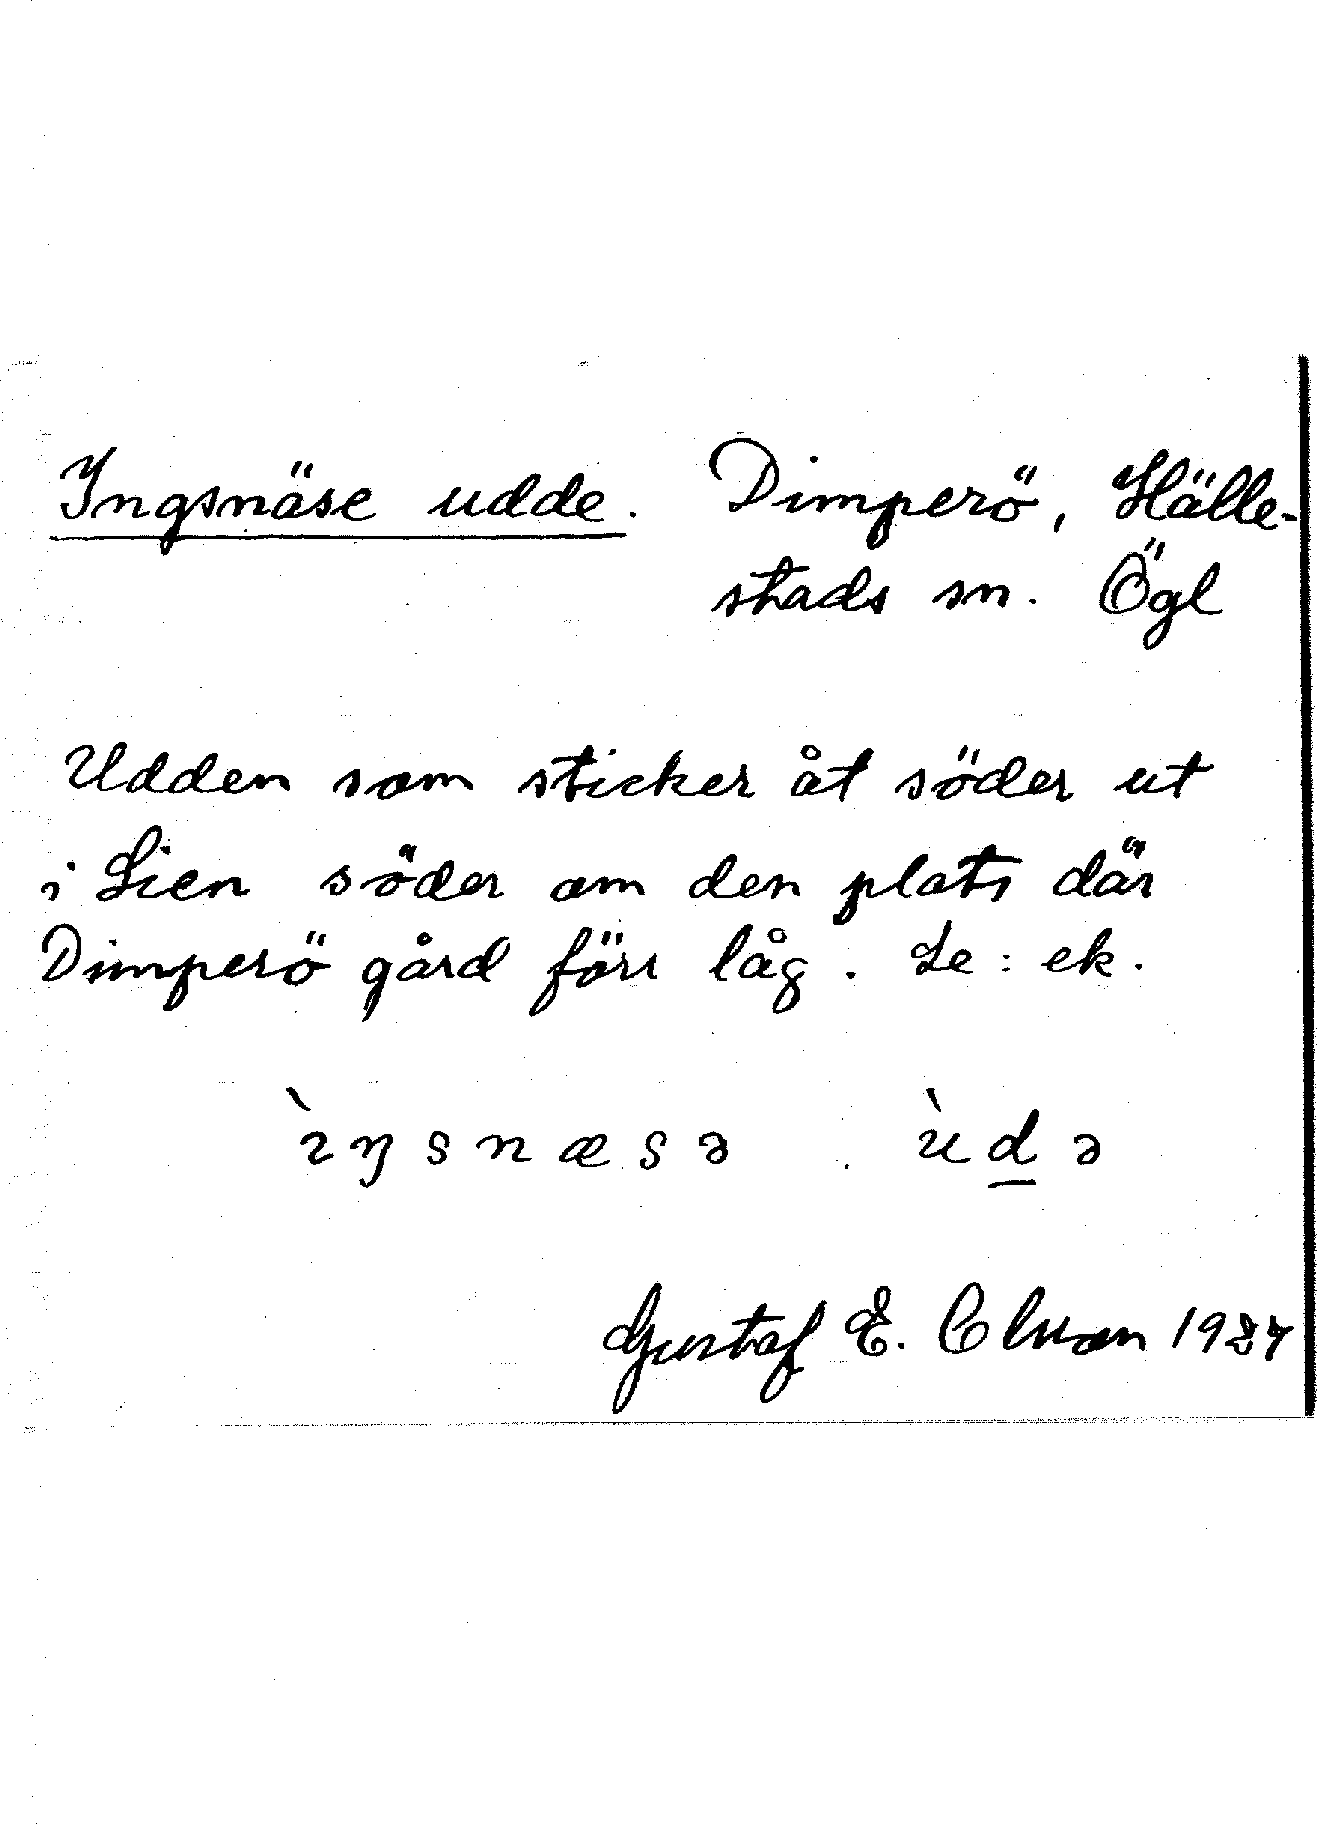 Ingsnäse udde. Dimperö, Hälle-
stads sn. Ögl
Udden som sticker åt söder ut
i Lien söder om den plats där
Dimperö gård förr låg. Le: ek.
ìŋsnæsə ùdə
Gustaf E.